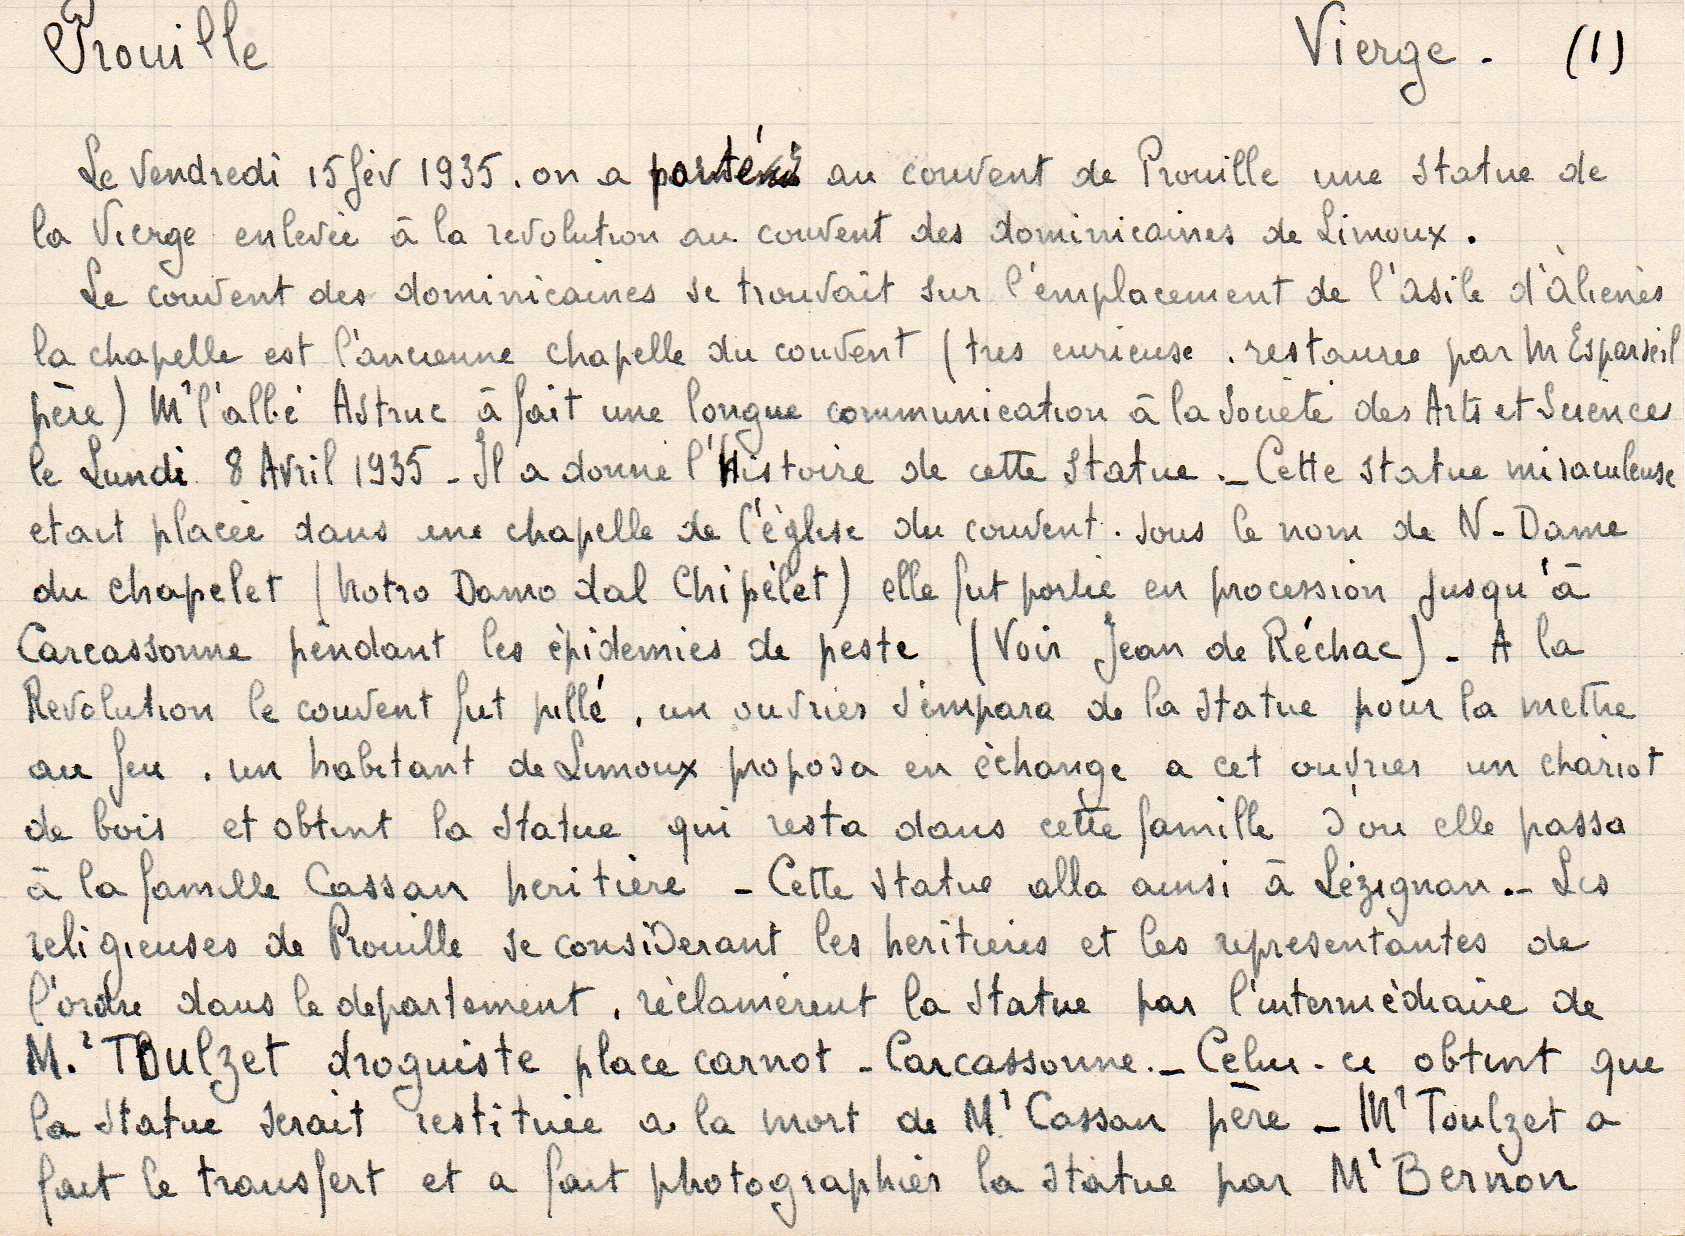 Prouille Vierge. (1)
Le Vendredi 15 fév 1935. on a porté au couvent de Prouille une statue de
la Vierge enlevée à la revolution au couvent des dominicaines de Limoux.
Le couvent des dominicaines se trouvait sur l'emplacement de l'asile d'aliénés
la chapelle est l'ancienne chapelle du couvent (tres curieuse. restaurée par Mr Esparseil
père) Mr l'abbé Astruc à fait une longue communication à la Société des Arts et Sciences
le Lundi 8 Avril 1935 - Il a donné l'Histoire de cette statue. - Cette statue miraculeuse
etait placée dans une chapelle de l'église du couvent. sous le nom de N-Dame
du chapelet (Notro Damo dal Chipélet) elle fut portée en procession jusqu'à
Carcassonne pendant les épidemies de peste (Voir Jean de Réchac) - A la
Revolution le couvent fut pillé, un ouvrier s'empara de la statue pour la mettre
au feu. un habitant de Limoux proposa en échange a cet ouvrier un chariot
de bois et obtint la statue qui resta dans cette famille d'où elle passa
à la famille Cassan heritière - Cette statue alla ainsi à Lézignan. - Les
religieuses de Prouille se considerant les heritieres et les representantes de
l'ordre dans le departement, réclamèrent la statue par l'intermédiaire de
M.r Toulzet droguiste place carnot - Carcassonne. - Celui-ci obtint que
la statue serait restituée a la mort de Mr Cassan père - Mr Toulzet a
fait le transfert et a fait photographier la statue par Mr Bernon